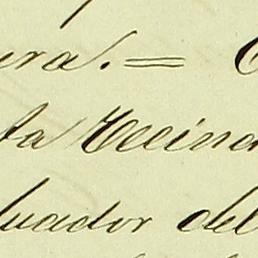 ura. =
ta Vecina
luador del